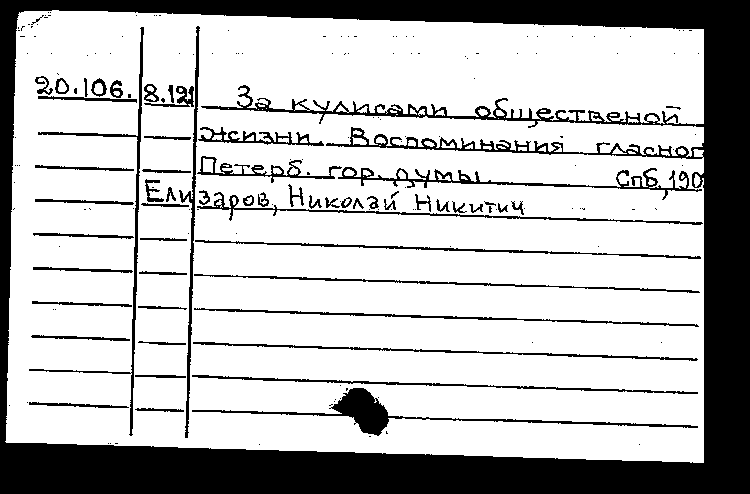 20.106. 8.12 За кулисами общественой
жизни. Воспоминания гласног
Петерб. гор. думы. Спб, 190
Елизаров, Николай Никитич